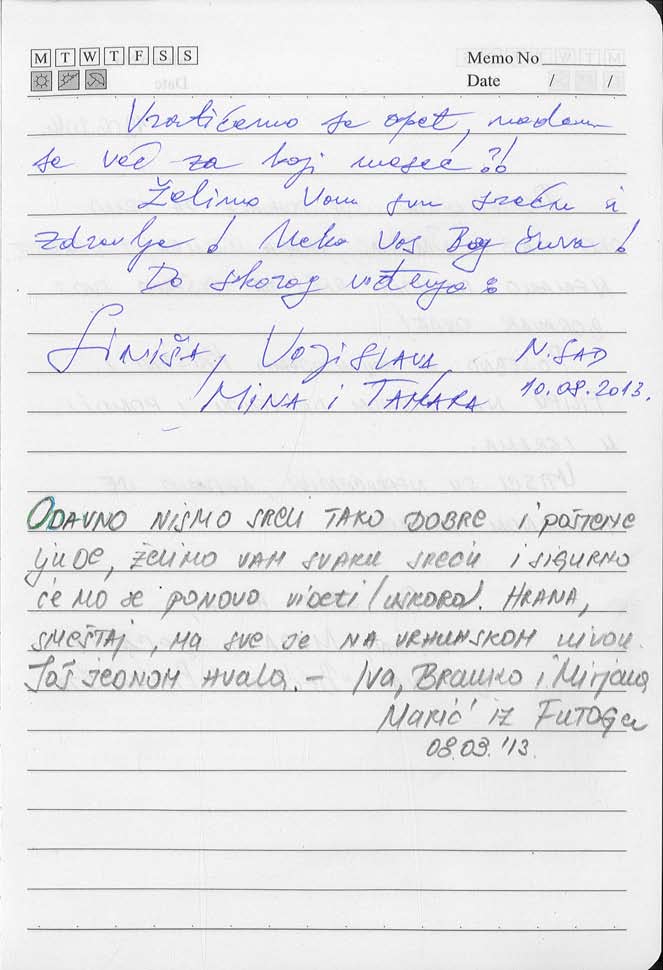 M T W T F S S
Memo No
Date / /
Vratićemo se opet, nadam
se već za koji mesec ?!
Želimo Vam svu sreću i
zdravlje ! Neka Vas Bog čuva !
Do skorog viđenja :
Siniša, Vojislava, N. SAD
MINA i TAMARA 10.08.2013.
ODAVNO NISMO SRELI TAKO DOBRE I POŠTENE
LJUDE, ŽELIMO VAM SVAKU SREĆU I SIGURNO
ĆEMO SE PONOVO VIDETI (USKORO). HRANA,
SMEŠTAJ, MA SVE JE NA VRHUNSKOM NIVOU.
JOŠ JEDNOM HVALA. – Iva, Branko i Mirjana
Marić iz FUTOGA
08.09.'13.